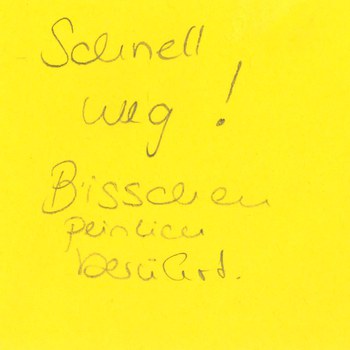 Schnell
weg!
Bisschen
peinlich
berührt.